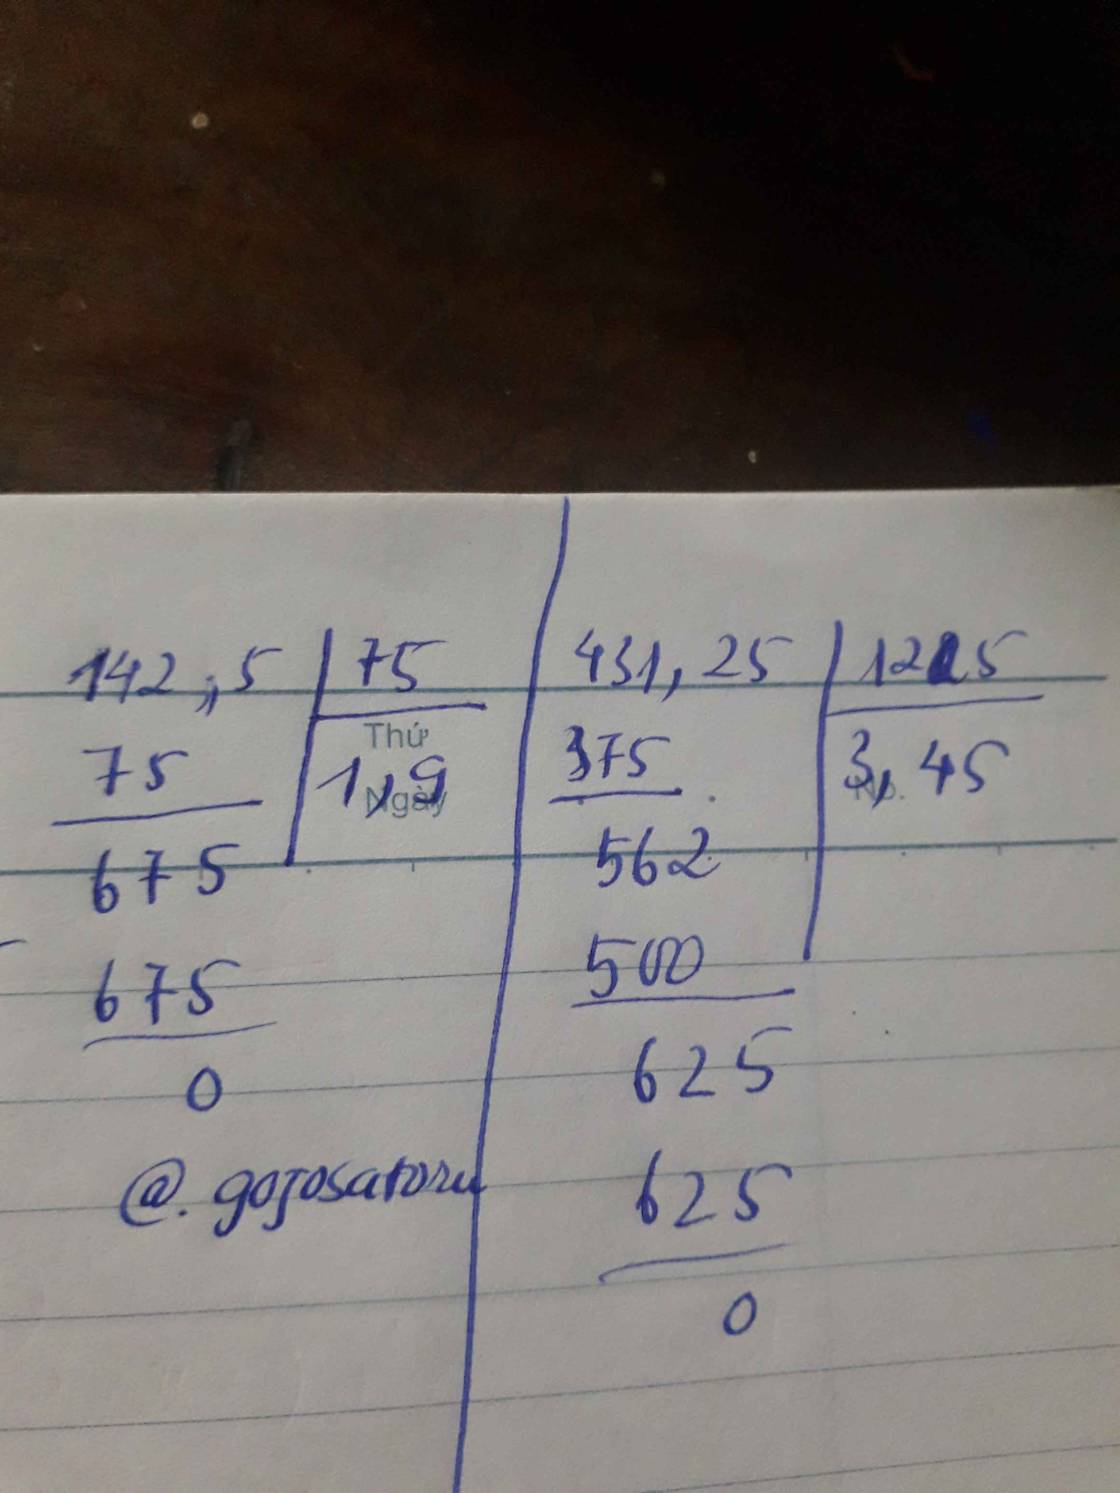 142,5 75
75 Thứ
1,9
Ngày
675
675
0
@.gojosatoru
431,25 125
375 3,45
No.
562
500
625
625
0